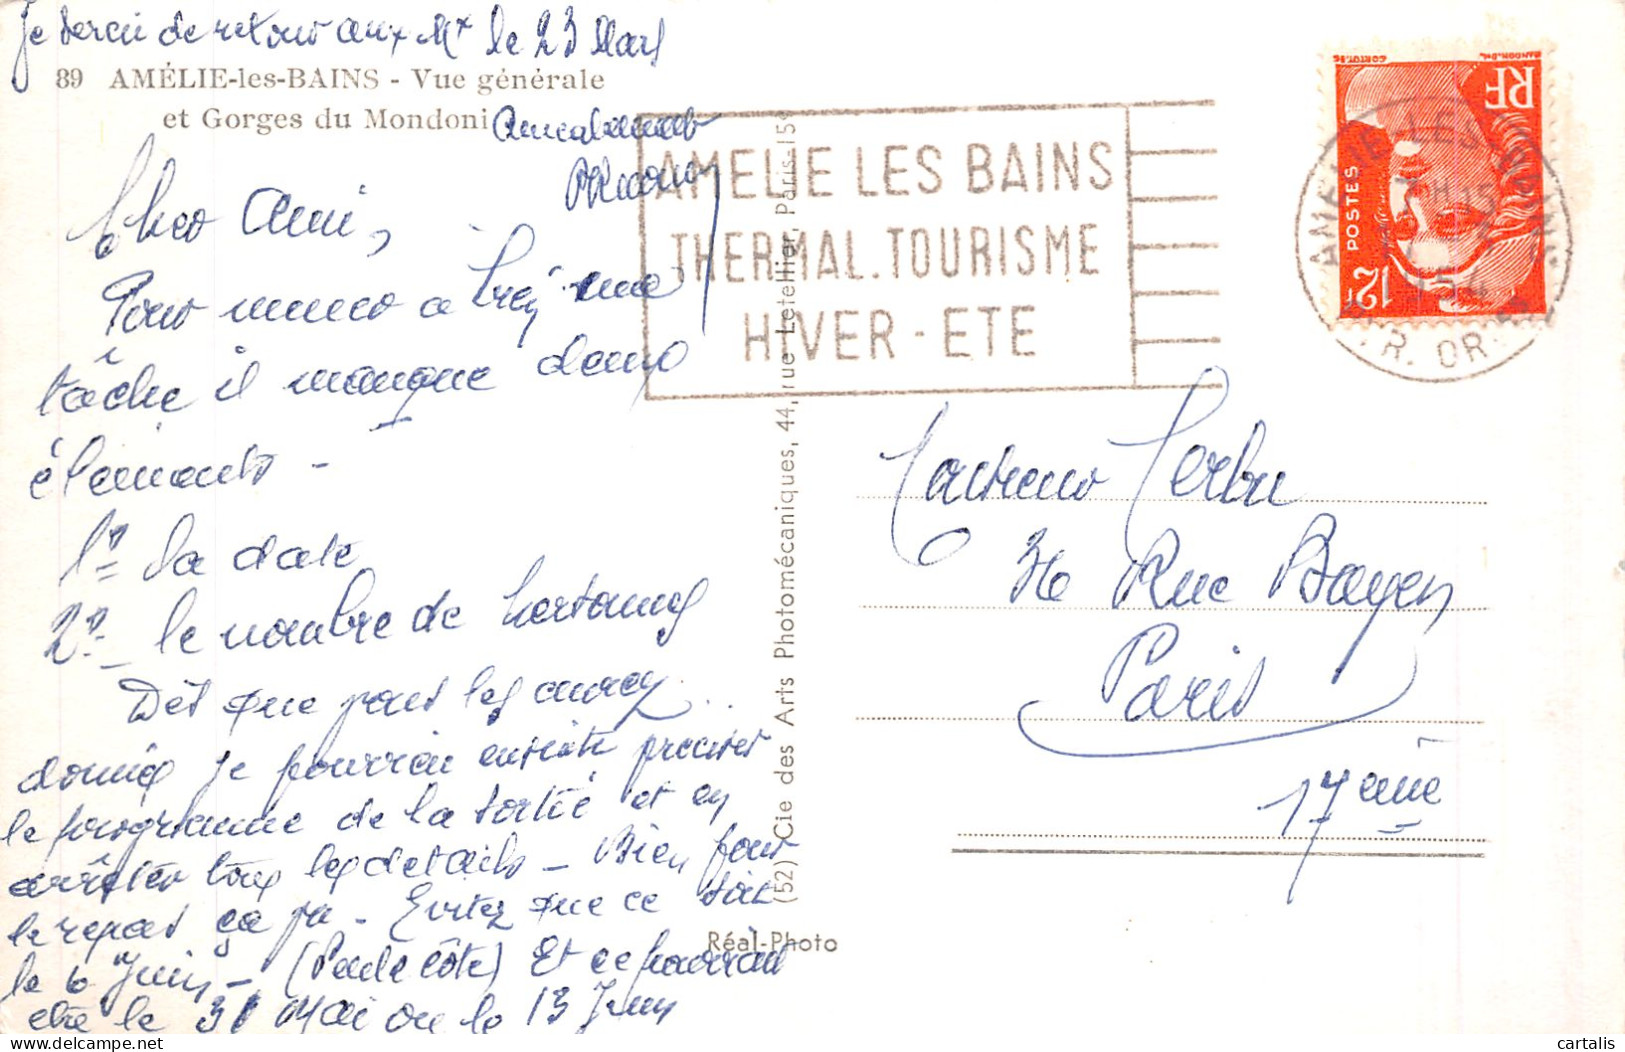 Je serai de retour aux Mx le 23 Mars
89 AMÉLIE-les-BAINS - Vue générale
et Gorges du Mondoni
Amicalement
Cher Ami,
Pour mener à bien une
tâche il manque deux
éléments -
1° la date
2° - le nombre de
Dès que vous les aurez
donnés je pourrai ensuite préciser
le programme de la sortie et en
arrêter tous les détails - Bien pour
le repas ça va - Evitez que ce soit
le 6 Juin - (Pentecôte) Et ce pourrait
être le 31 Mai ou le 13 Juin
(52) Cie des Arts Photomécaniques, 44, rue Letellier, Paris-15e
Réal-Photo
AMELIE LES BAINS
THERMAL.TOURISME
HIVER - ETE
AMELIE-LES-BAINS
54
R. OR.
RF
POSTES
12F
36 Rue Bayen
Paris
17eme
cartalis